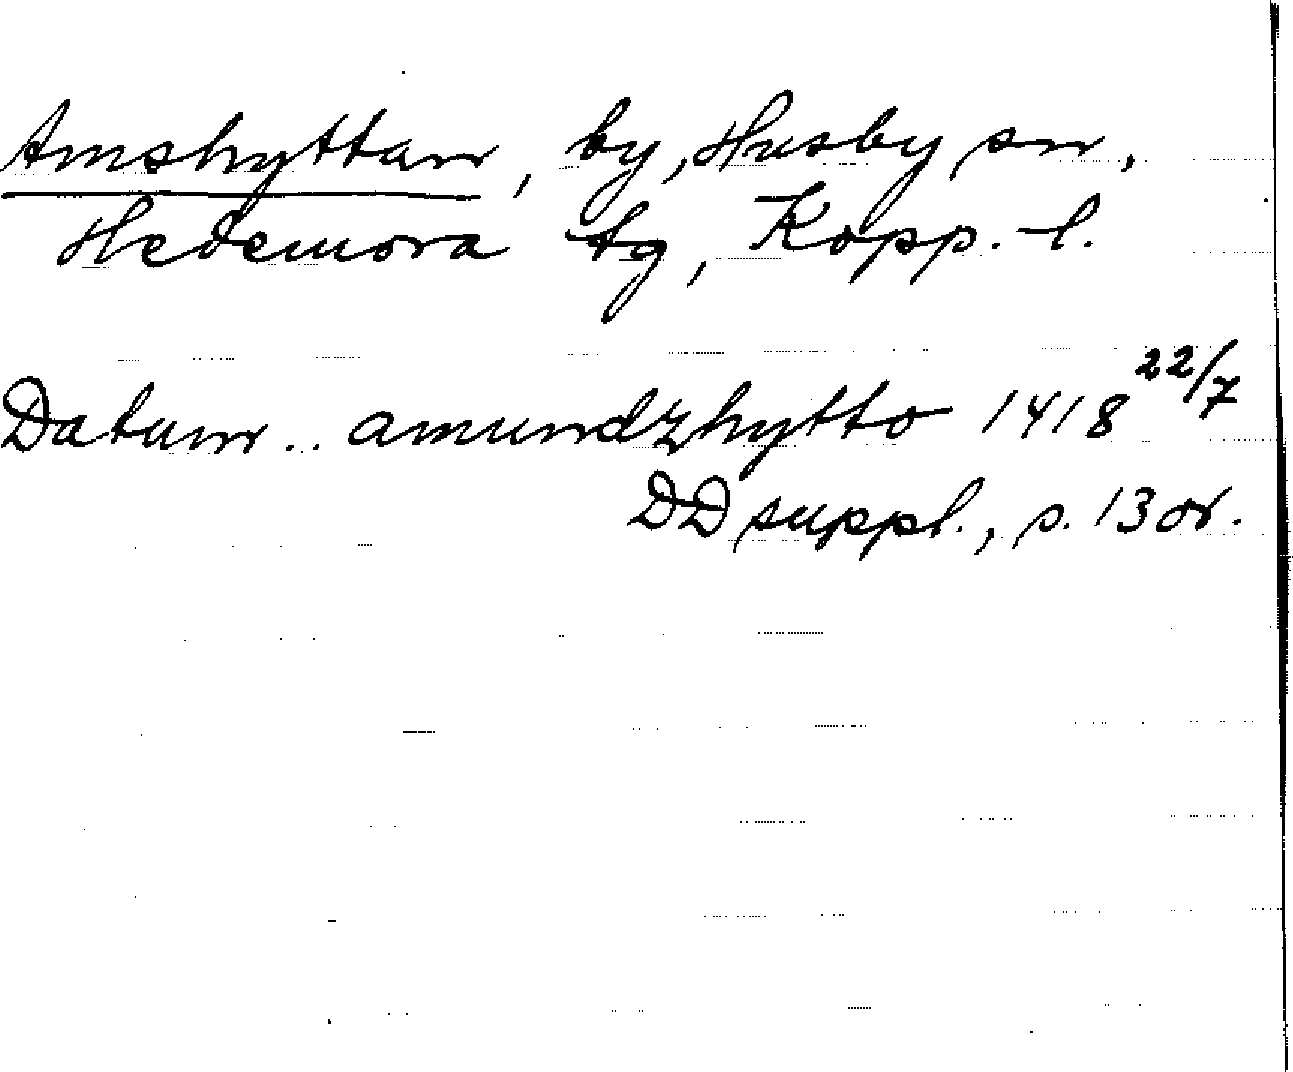 Amshyttan, by, Husby sn,
Hedemora tg, Kopp. l.
Datum .. amundzhytto 1418 22/7
DD suppl., s. 13 or.